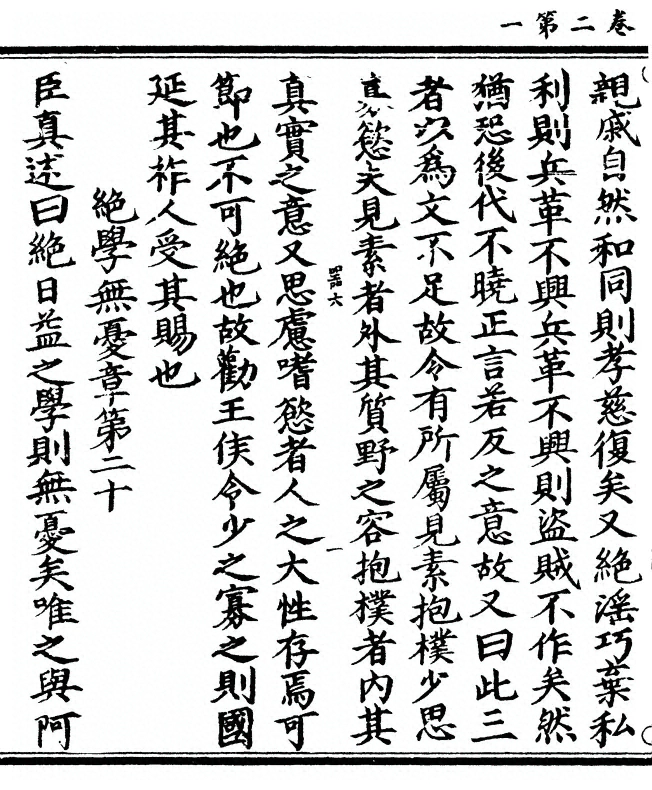 卷二第一
親戚自然和同則孝慈復矣又絶滛巧棄私
利則兵革不興兵革不興則盜賊不作矣然
猶恐後代不曉正言若反之意故又曰此三
者以爲文不足故令有所屬見素抱樸少思
寡慾夫見素者外其質野之容抱樸者內其
罪六
真實之意又思慮嗜慾者人之大性存焉可
節也不可絶也故勸王侯令少之寡之則國
延其祚人受其賜也
絶學無憂章第二十
臣真述曰絶日益之學則無憂矣唯之與阿